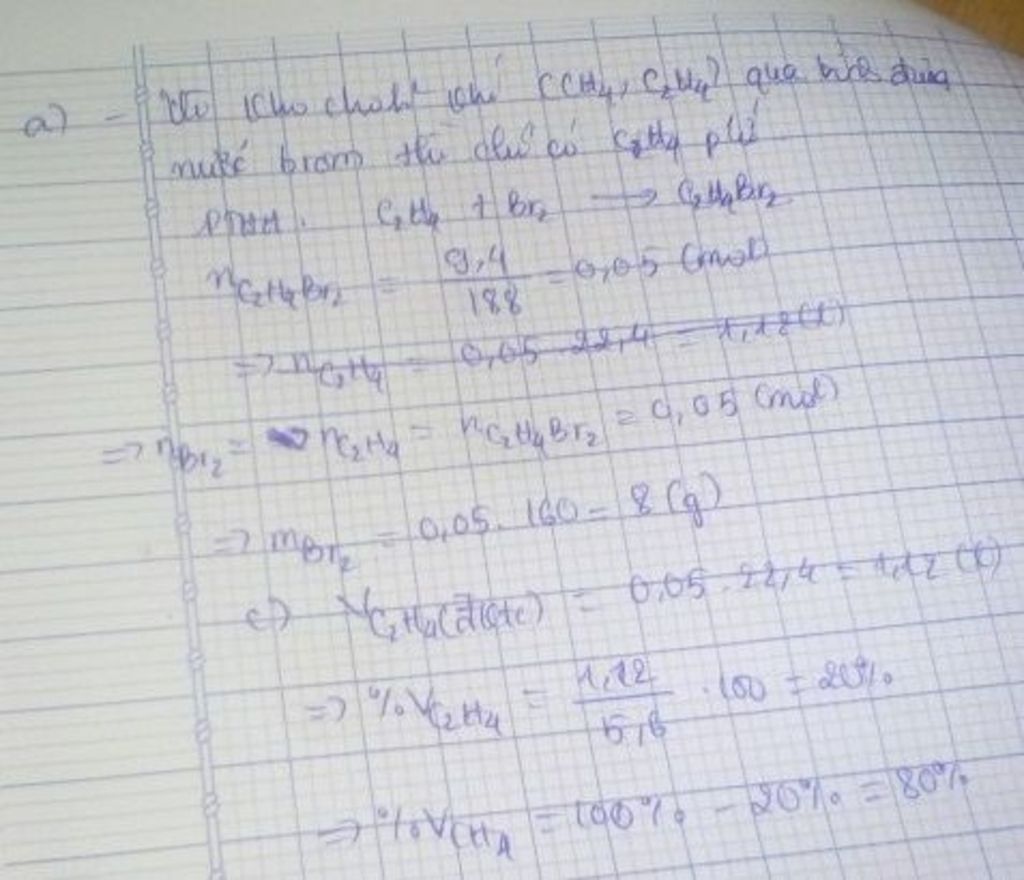 a) - Khi cho hh khí (CH4, C2H4) qua bình đựng
nước brom thì chỉ có C2H4 pứ
PTHH: C2H4 + Br2 → C2H4Br2
nC2H4Br2 = 9,4/188 = 0,05 (mol)
=> nC2H4 = 0,05 22,4 = 1,12 (l)
=> nBr2 = nC2H4 = nC2H4Br2 = 0,05 (mol)
=> mBr2 = 0,05. 160 = 8 (g)
c) VC2H4(đktc) = 0,05. 22,4 = 1,12 (l)
=> %VC2H4 = 1,12/5,6 . 100 = 20%
=> %VCH4 = 100% - 20% = 80%